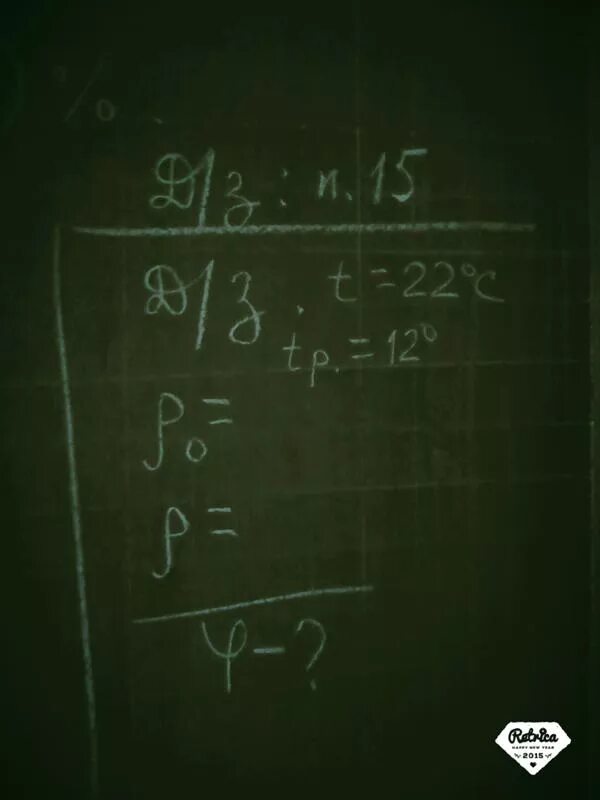 Д/з: п. 15
Д/з. t = 22°C
tр. = 12°
ρ₀ =
ρ =
φ - ?
Retrica
HAPPY NEW YEAR
2015